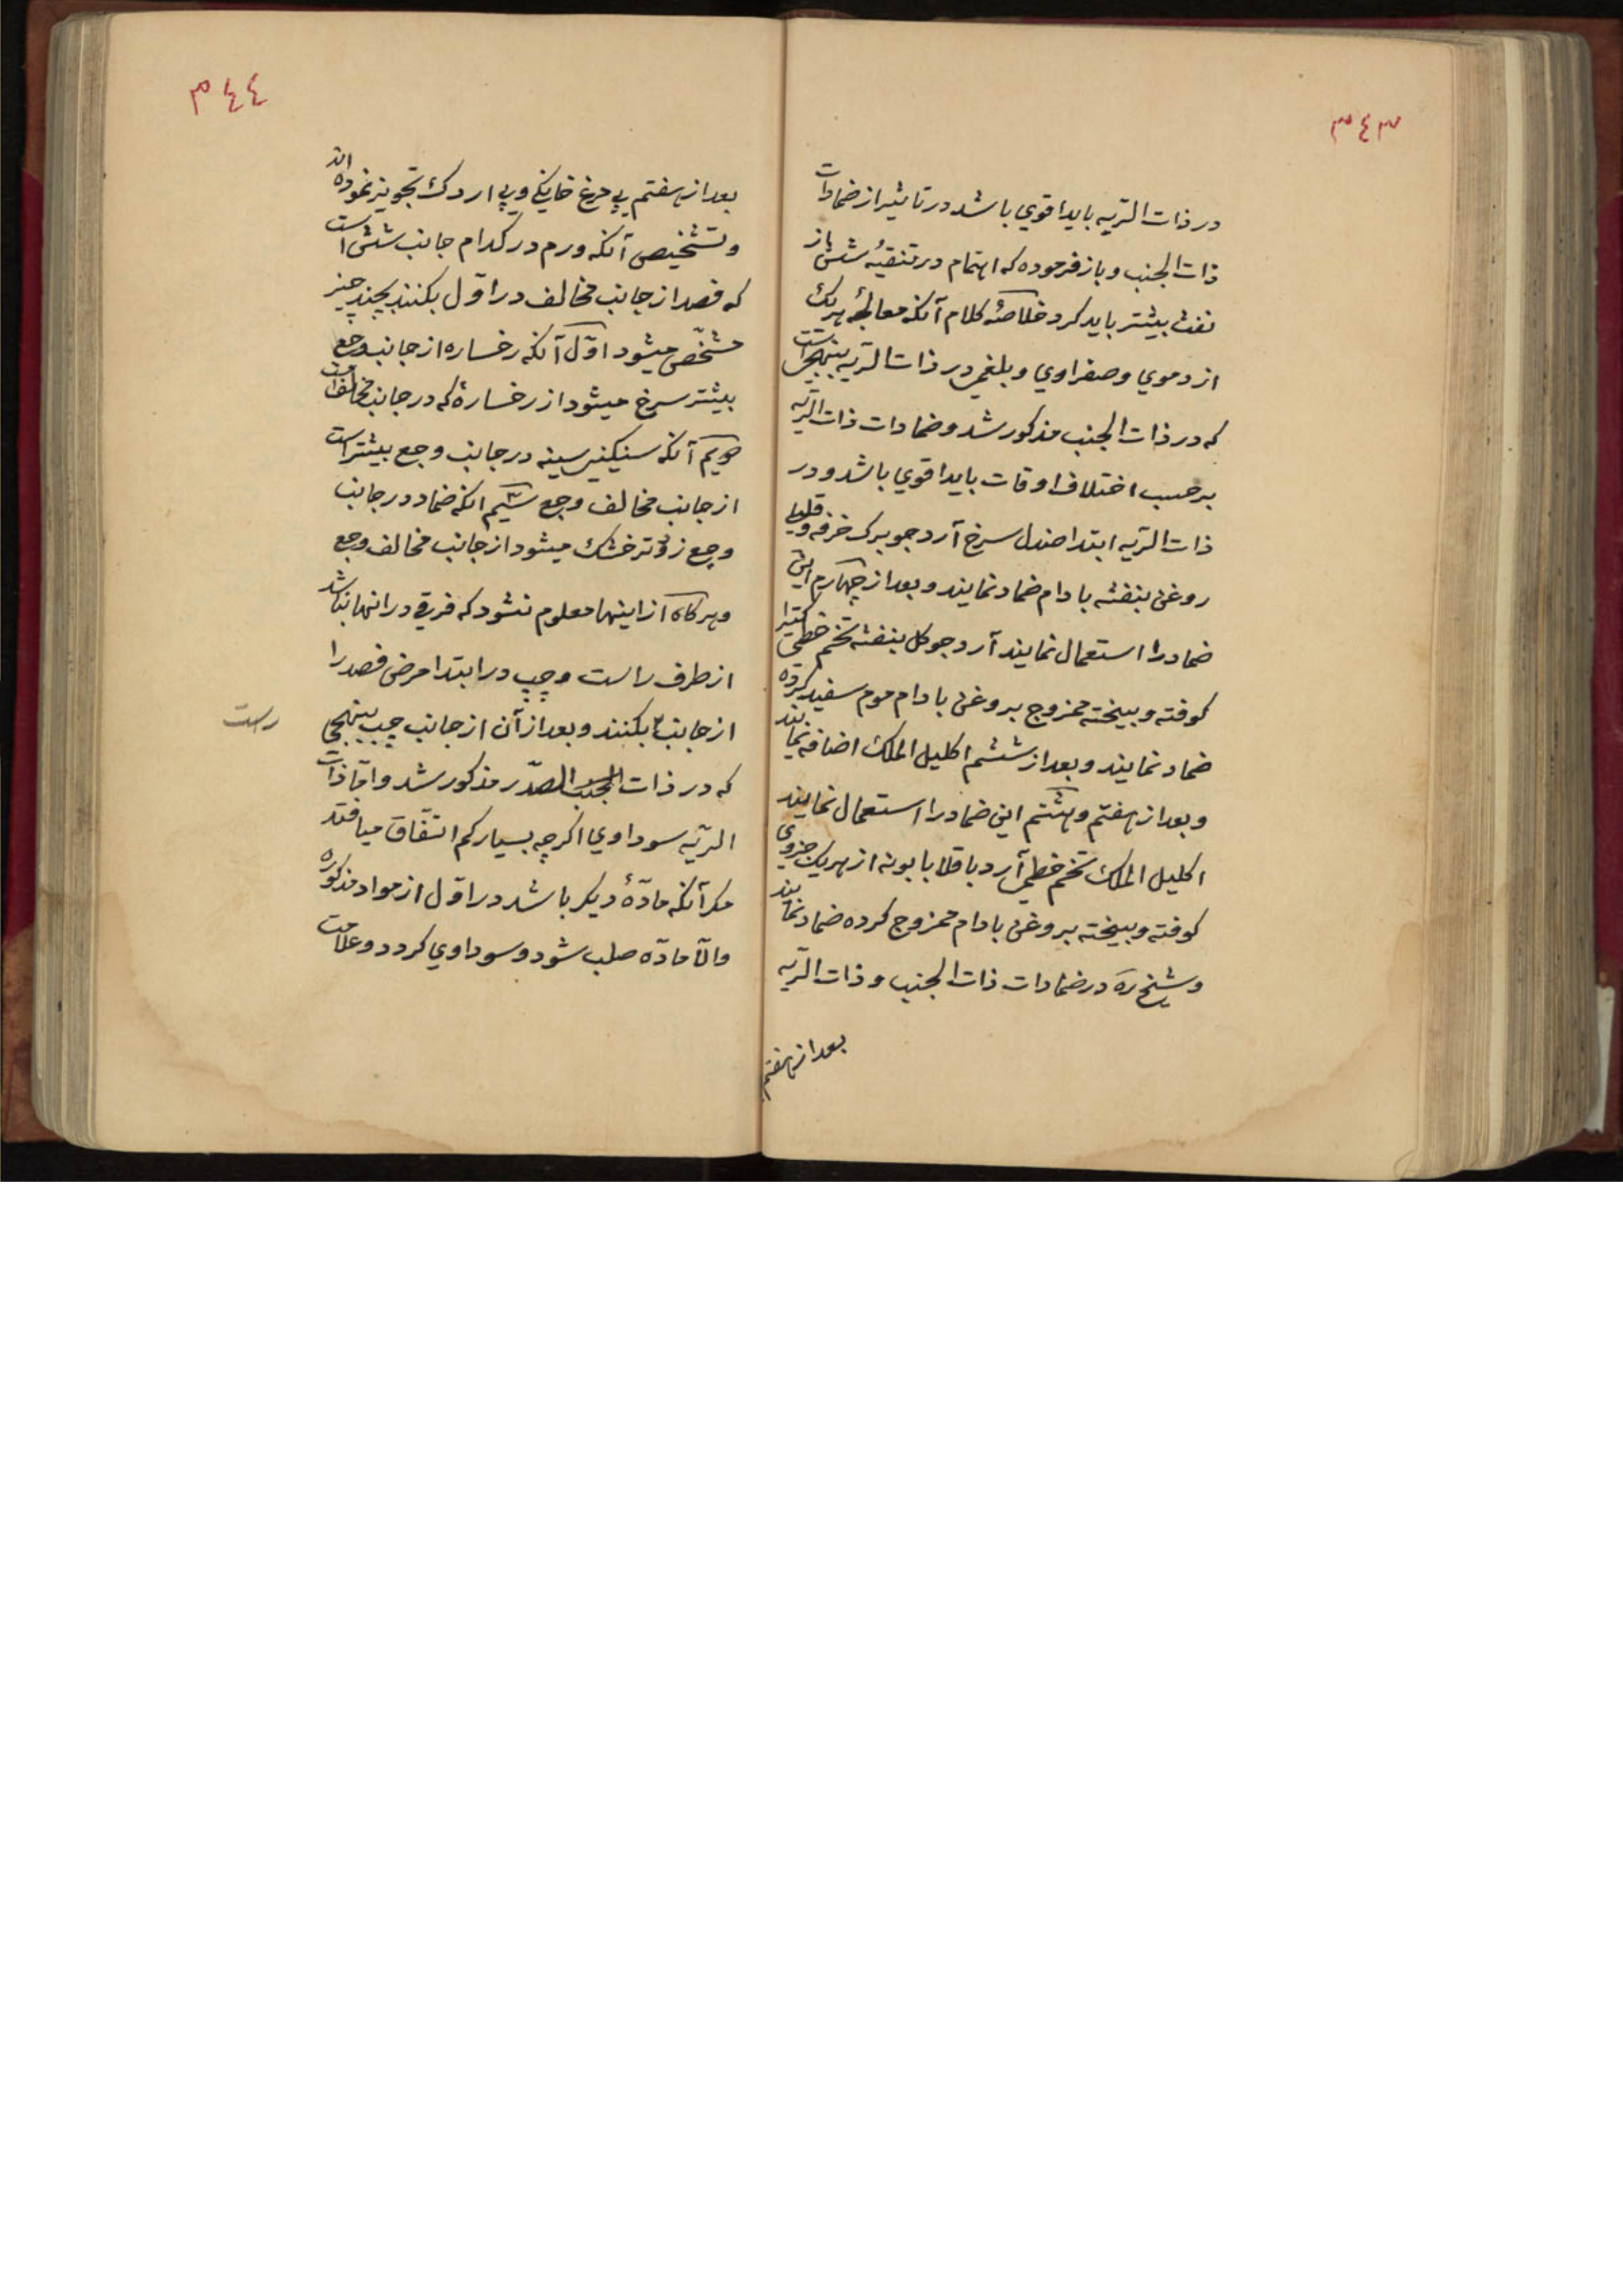 ۳٤۳
در ذات الریه باید اقوی باشد در تاثیر از ضمادات
ذات الجنب و باز فرموده که اهتمام در تنقیهٔ شش باز
نفث بیشتر باید کرد خلاصهٔ کلام آنکه معالجهٔ هریک
از دموی و صفراوی و بلغمی در ذات الریه بنهجی است
که در ذات الجنب مذکور شد و ضمادات ذات الریه
برحسب اختلاف اوقات باید اقوی باشد و در
ذات الریه ابتدا صندل سرخ آرد جو برک خرفه و قلیلی
روغن بنفشه بادام ضماد نمایند و بعد از چهارم این
ضماد را استعمال نمایند آرد جو کل بنفشه تخم خطمی کتیرا
کوفته و بیخته ممزوج بروغن بادام موم سفید کرده
ضماد نمایند و بعد از ششم اکلیل الملک اضافه نمایند
و بعد از هفتم و هشتم این ضماد را استعمال نمایند
اکلیل الملک تخم خطمی آرد باقلا بابونه از هریک جزوی
کوفته و بیخته بروغن بادام ممزوج کرده ضماد نمایند
و شیخ ره در ضمادات ذات الجنب و ذات الریه
بعد از هفتم
۳٤٤
بعد از هفتم پی مرغ خانکی و پی اردک تجویز نموده اند
و تشخیص آنکه ورم در کدام جانب شش است
که فصد از جانب مخالف در اول بکنند بچند چیز
مشخّص میشود اوّل آنکه رخساره از جانب وجع
بیشتر سرخ میشود از رخسارهٔ که در جانب مخالف است
دویم آنکه سنکینی سینه در جانب وجع بیشتر است
از جانب مخالف وجع سیم انکه ضماد در جانب
وجع زودتر خشک میشود از جانب مخالف وجع
و هرکاه از اینها معلوم نشود که فرقی در انها نباشد
از طرف راست و چپ در ابتدا مرض فصد را
از جانب بکنند و بعد از آن از جانب چپ بنهجی
راست
که در ذات الجنب الصدّر مذکور شد و امّا ذات
الریّه سوداوی اکرچه بسیار کم اتّفاق میافتد
مکر آنکه مادّهٔ دیکر باشد در اوّل از مواد مذکوره
والّا مادّه صلب شود و سوداوی کردد و علامت